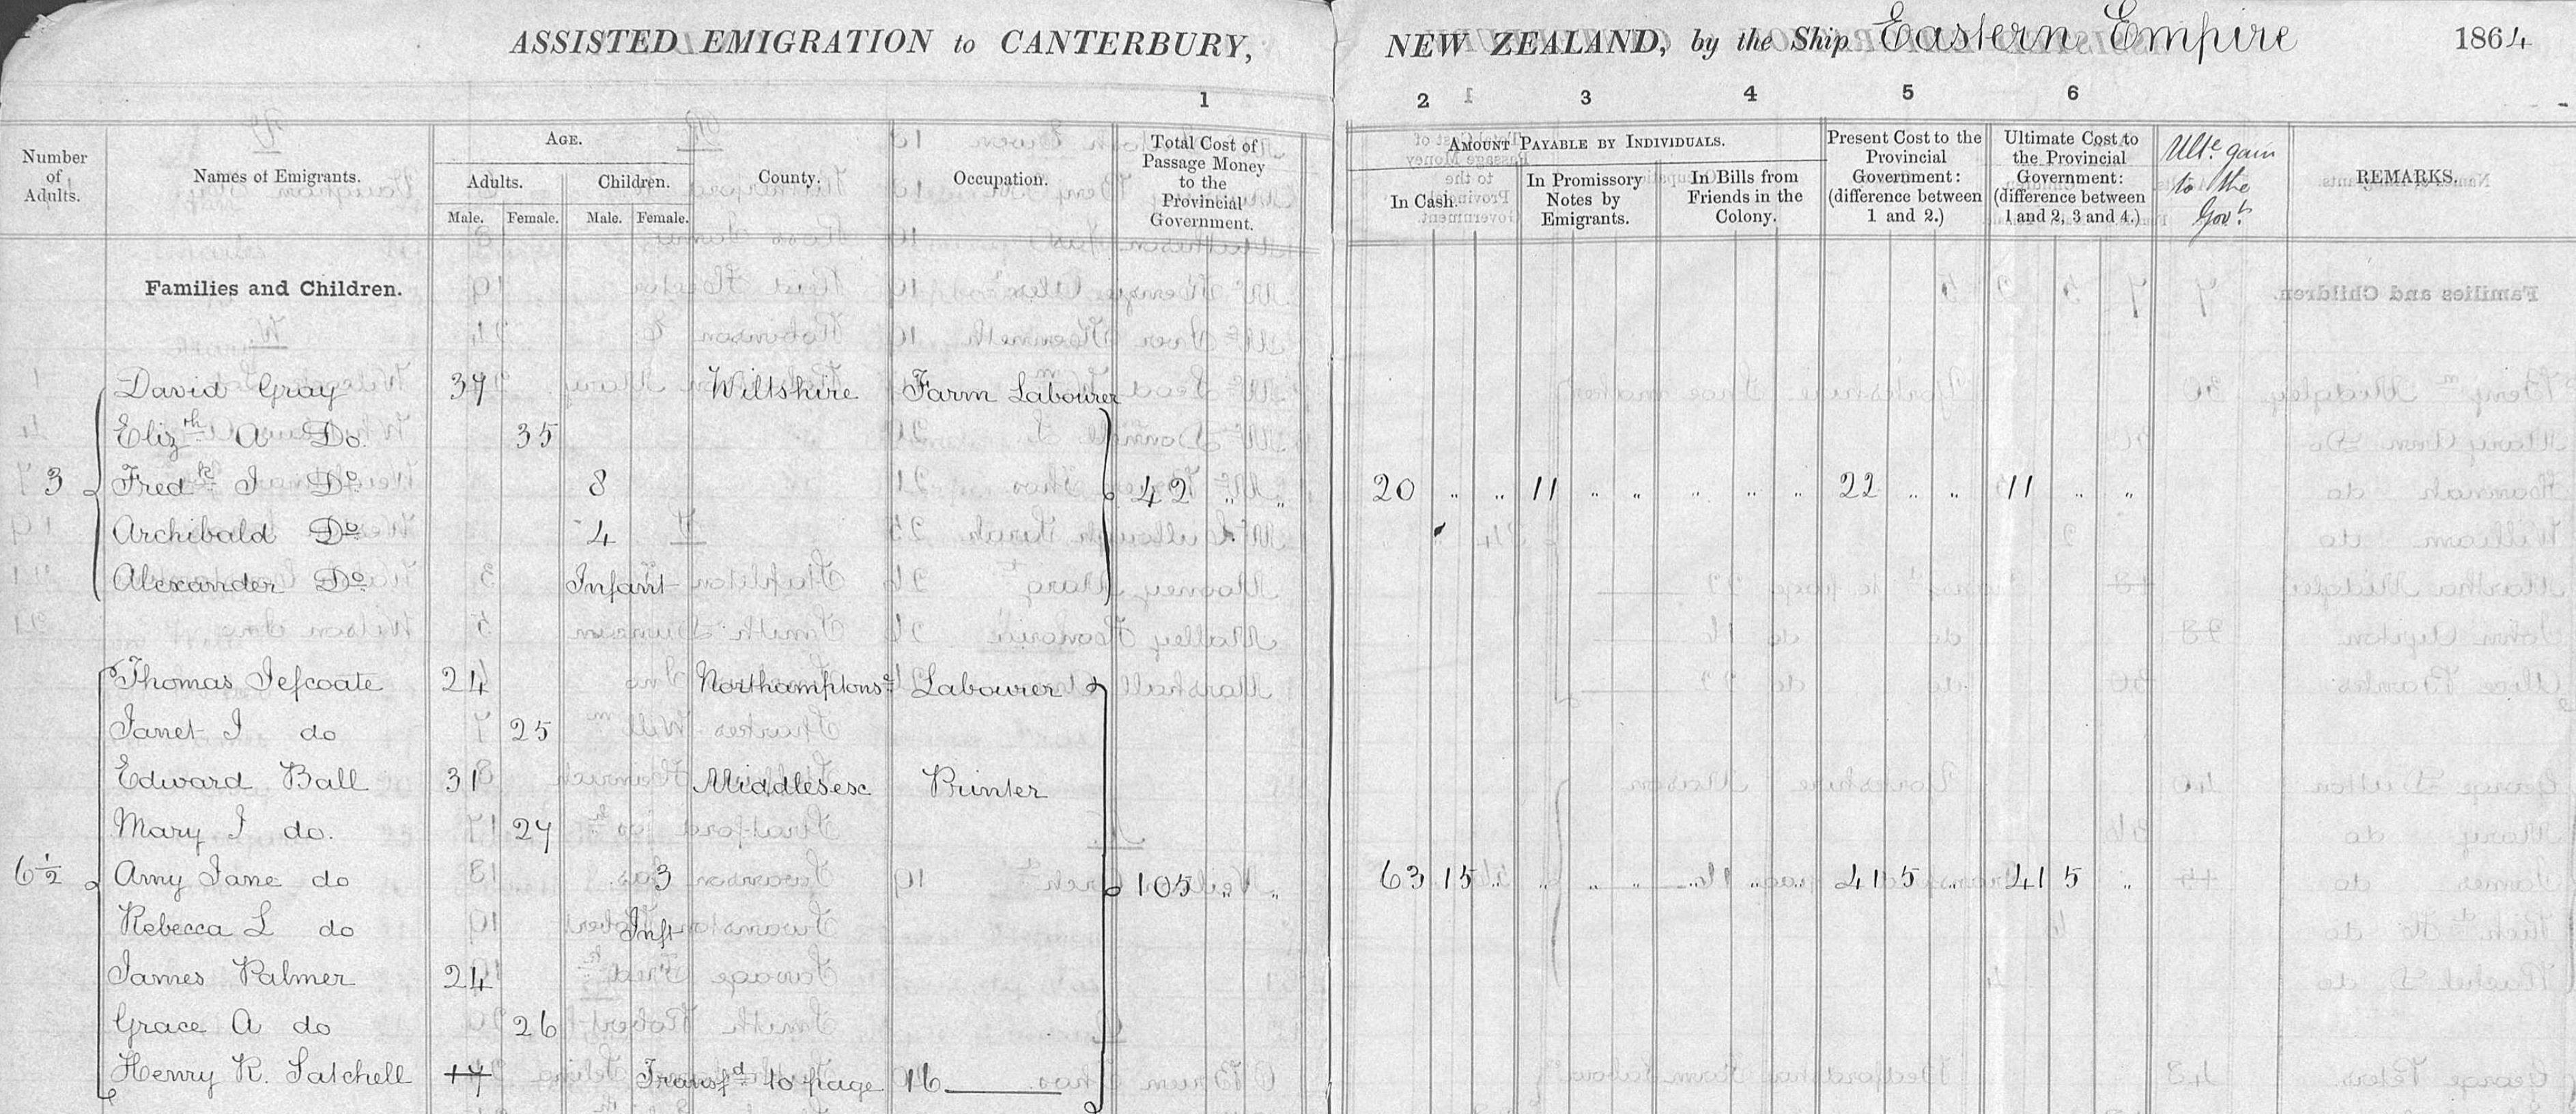 ASSISTED EMIGRATION to CANTERBURY, NEW ZEALAND, by the Ship Eastern Empire 1864
1 2 3 4 5 6
Number of Adults.
Names of Emigrants.
AGE.
Adults. Children.
Male. Female. Male. Female.
County.
Occupation.
Total Cost of Passage Money to the Provincial Government.
AMOUNT PAYABLE BY INDIVIDUALS.
In Cash.
In Promissory Notes by Emigrants.
In Bills from Friends in the Colony.
Present Cost to the Provincial Government: (difference between 1 and 2.)
Ultimate Cost to the Provincial Government: (difference between 1 and 2, 3 and 4.)
Ulte. gain to the Govt.
REMARKS.
Families and Children.
David Gray 37 Wiltshire Farm Labourer
Elizth A Do. 35
3 Fredk I Do 8 42 " " 20 " " 11 " " " " " 22 " " 11 " "
Archibald Do 4
Alexander Do Infant
Thomas Jefcoate 24 Northamptons Labourer
Janet I do 25
Edward Ball 31 Middlesex Printer
Mary I do. 27
6½ Amy Jane do 3 105 " " 63 15 " " " " " " " 41 5 " 41 5 "
Rebecca L do Inft
James Palmer 24
Grace A do 26
Henry R. Satchell 17 Transfd to page 16